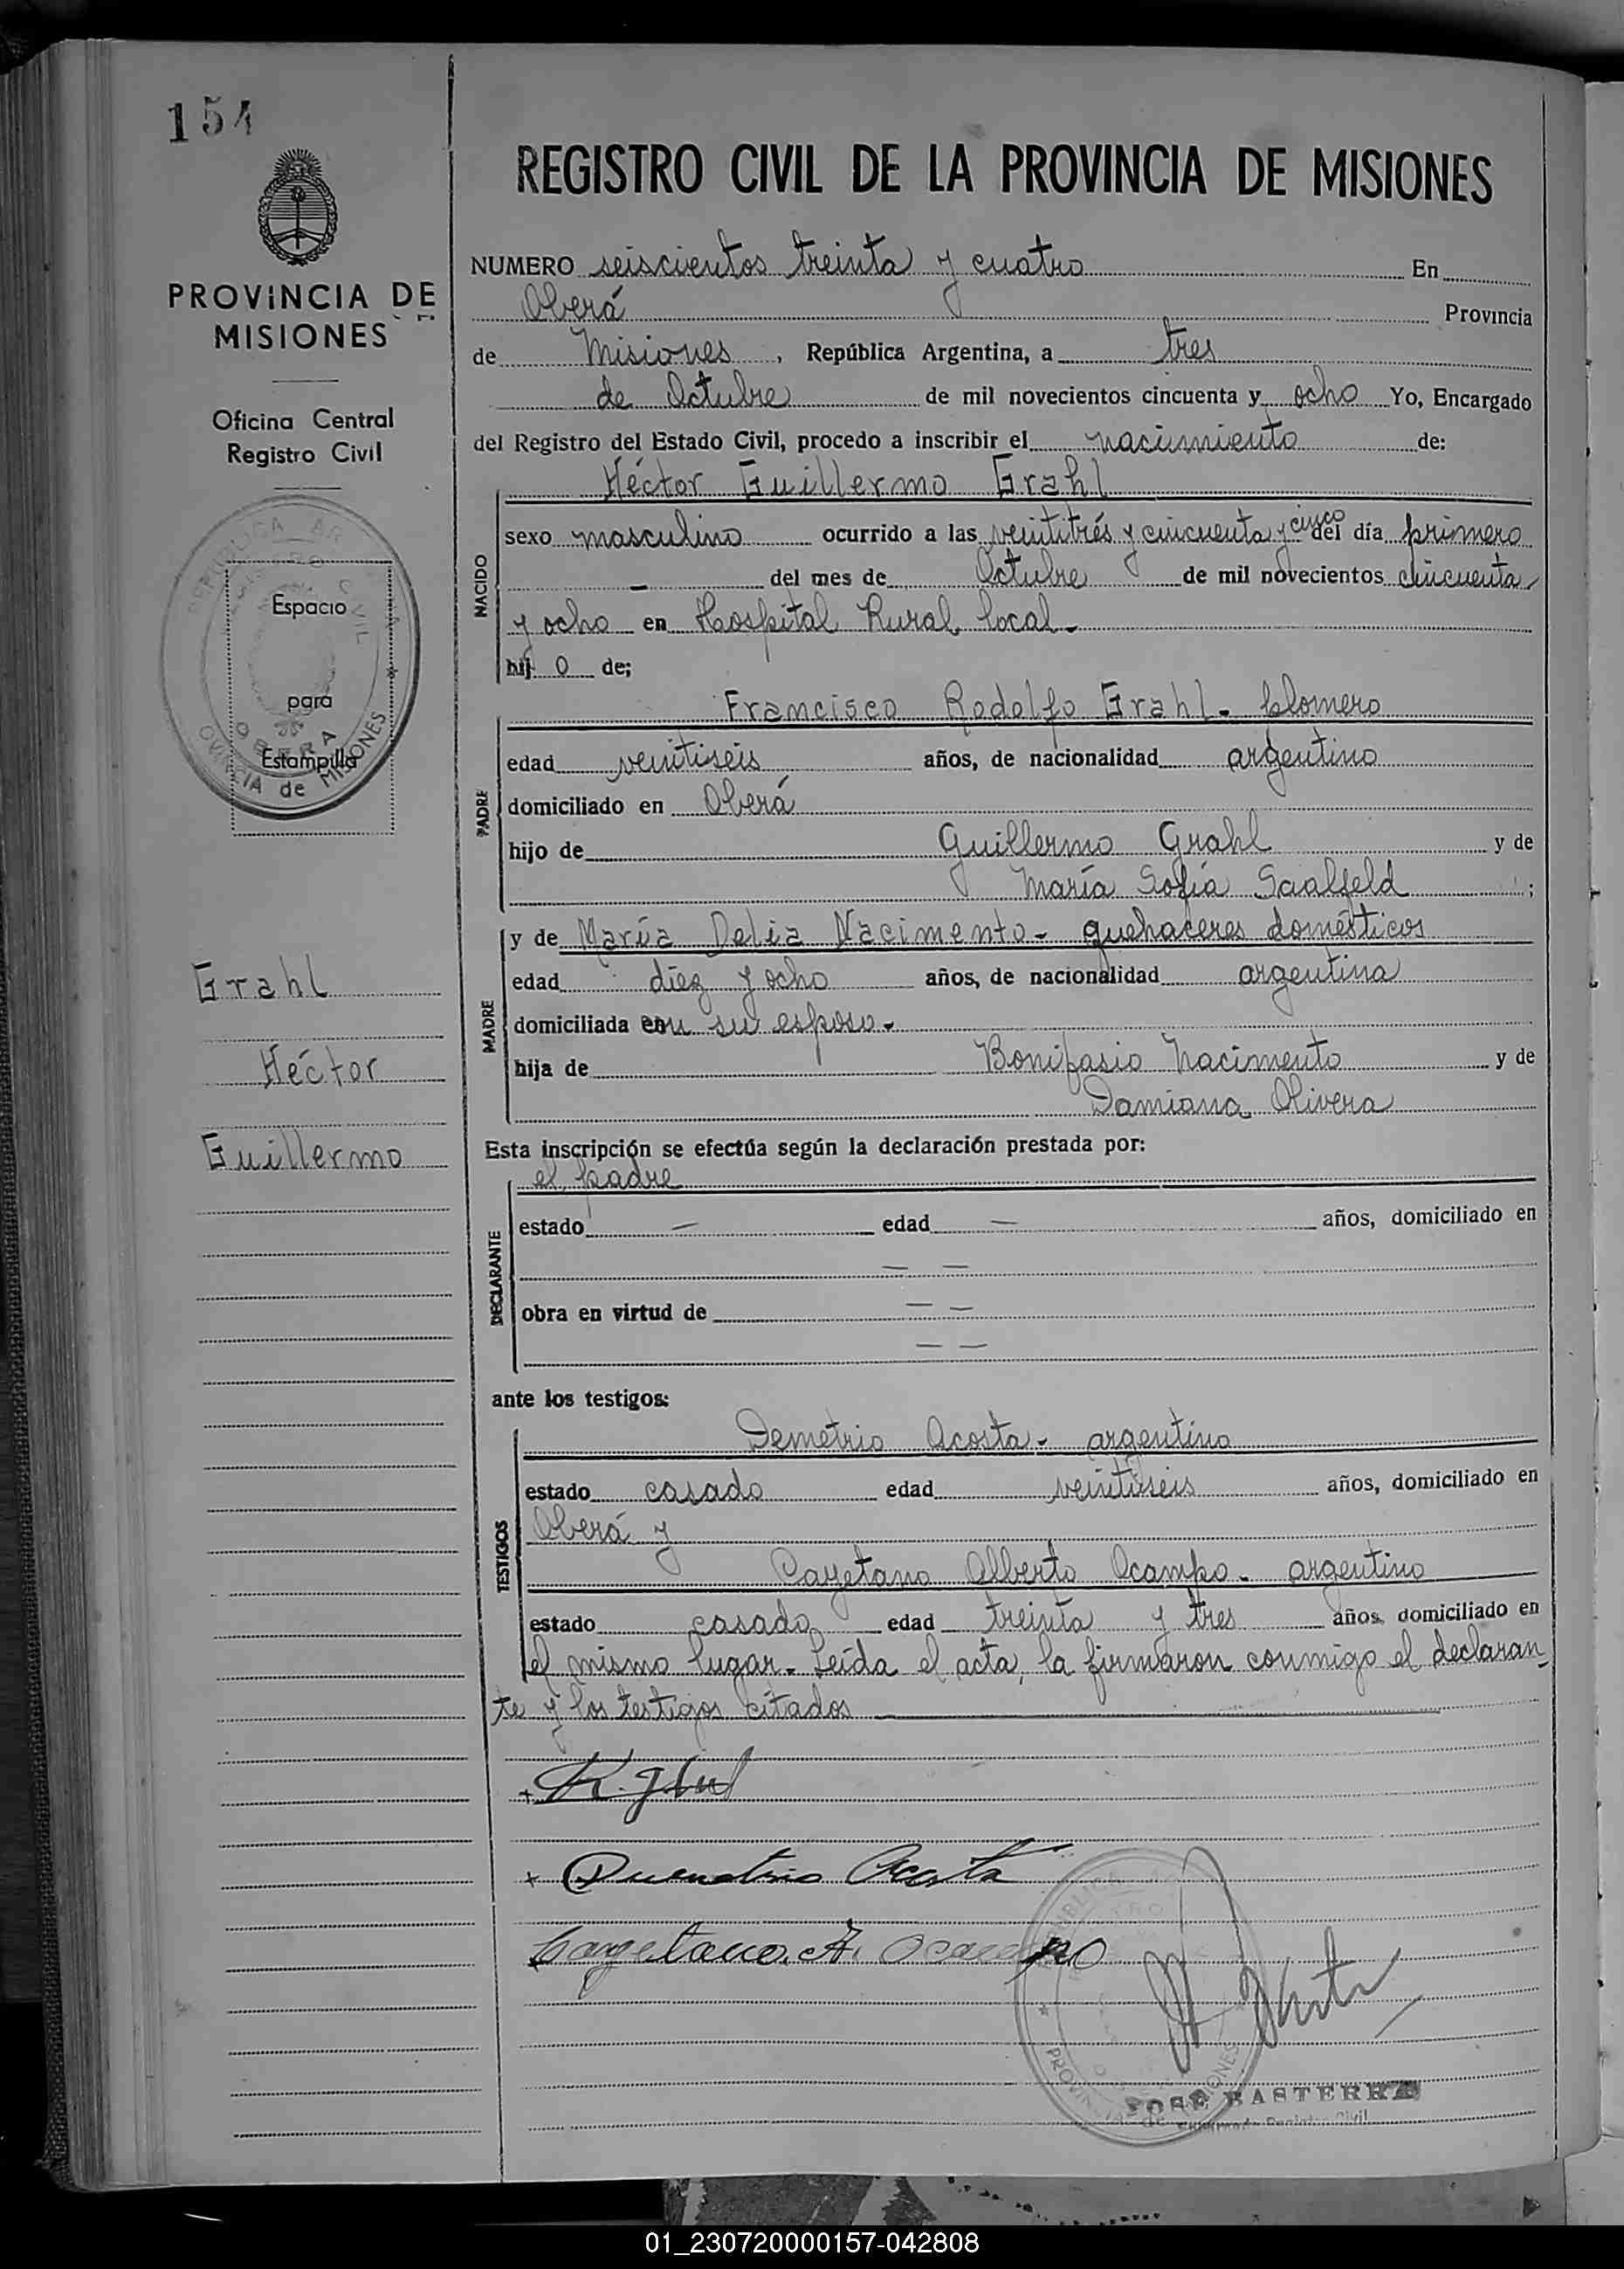 154
PROVINCIA DE
MISIONES
Oficina Central
Registro Civil
Espacio
para
Estampilla
Grahl
Héctor
Guillermo
REGISTRO CIVIL DE LA PROVINCIA DE MISIONES
NUMERO seiscientos treinta y cuatro En
Oberá Provincia
de Misiones, República Argentina, a tres
de Octubre de mil novecientos cincuenta y ocho Yo, Encargado
del Registro del Estado Civil, procedo a inscribir el nacimiento de:
Héctor Guillermo Grahl
NACIDO
sexo masculino ocurrido a las veintitrés y cincuenta y cinco del día primero
— del mes de Octubre de mil novecientos cincuenta
y ocho en Hospital Rural local-
hij o de;
PADRE
Francisco Rodolfo Grahl- plomero
edad veintiseis años, de nacionalidad argentino
domiciliado en Oberá
hijo de Guillermo Grahl y de
María Sofía Saalfeld ;
MADRE
y de María Delia Nacimento- quehaceres domésticos
edad diez y ocho años, de nacionalidad argentina
domiciliada con su esposo-
hija de Bonifasio Nacimento y de
Damiana Olivera
Esta inscripción se efectúa según la declaración prestada por:
DECLARANTE
el padre
estado — edad — años, domiciliado en
— —
obra en virtud de — —
— —
ante los testigos:
TESTIGOS
Demetrio Acosta- argentino
estado casado edad veintiseis años, domiciliado en
Oberá y
Cayetano Alberto Ocampo- argentino
estado casado edad treinta y tres años domiciliado en
el mismo lugar- Leída el acta, la firmaron conmigo el declaran-
te y los testigos citados
Demetrio Acosta
Cayetano A. Ocampo
JOSE BASTERRA
Encargado Registro Civil
01_230720000157-042808